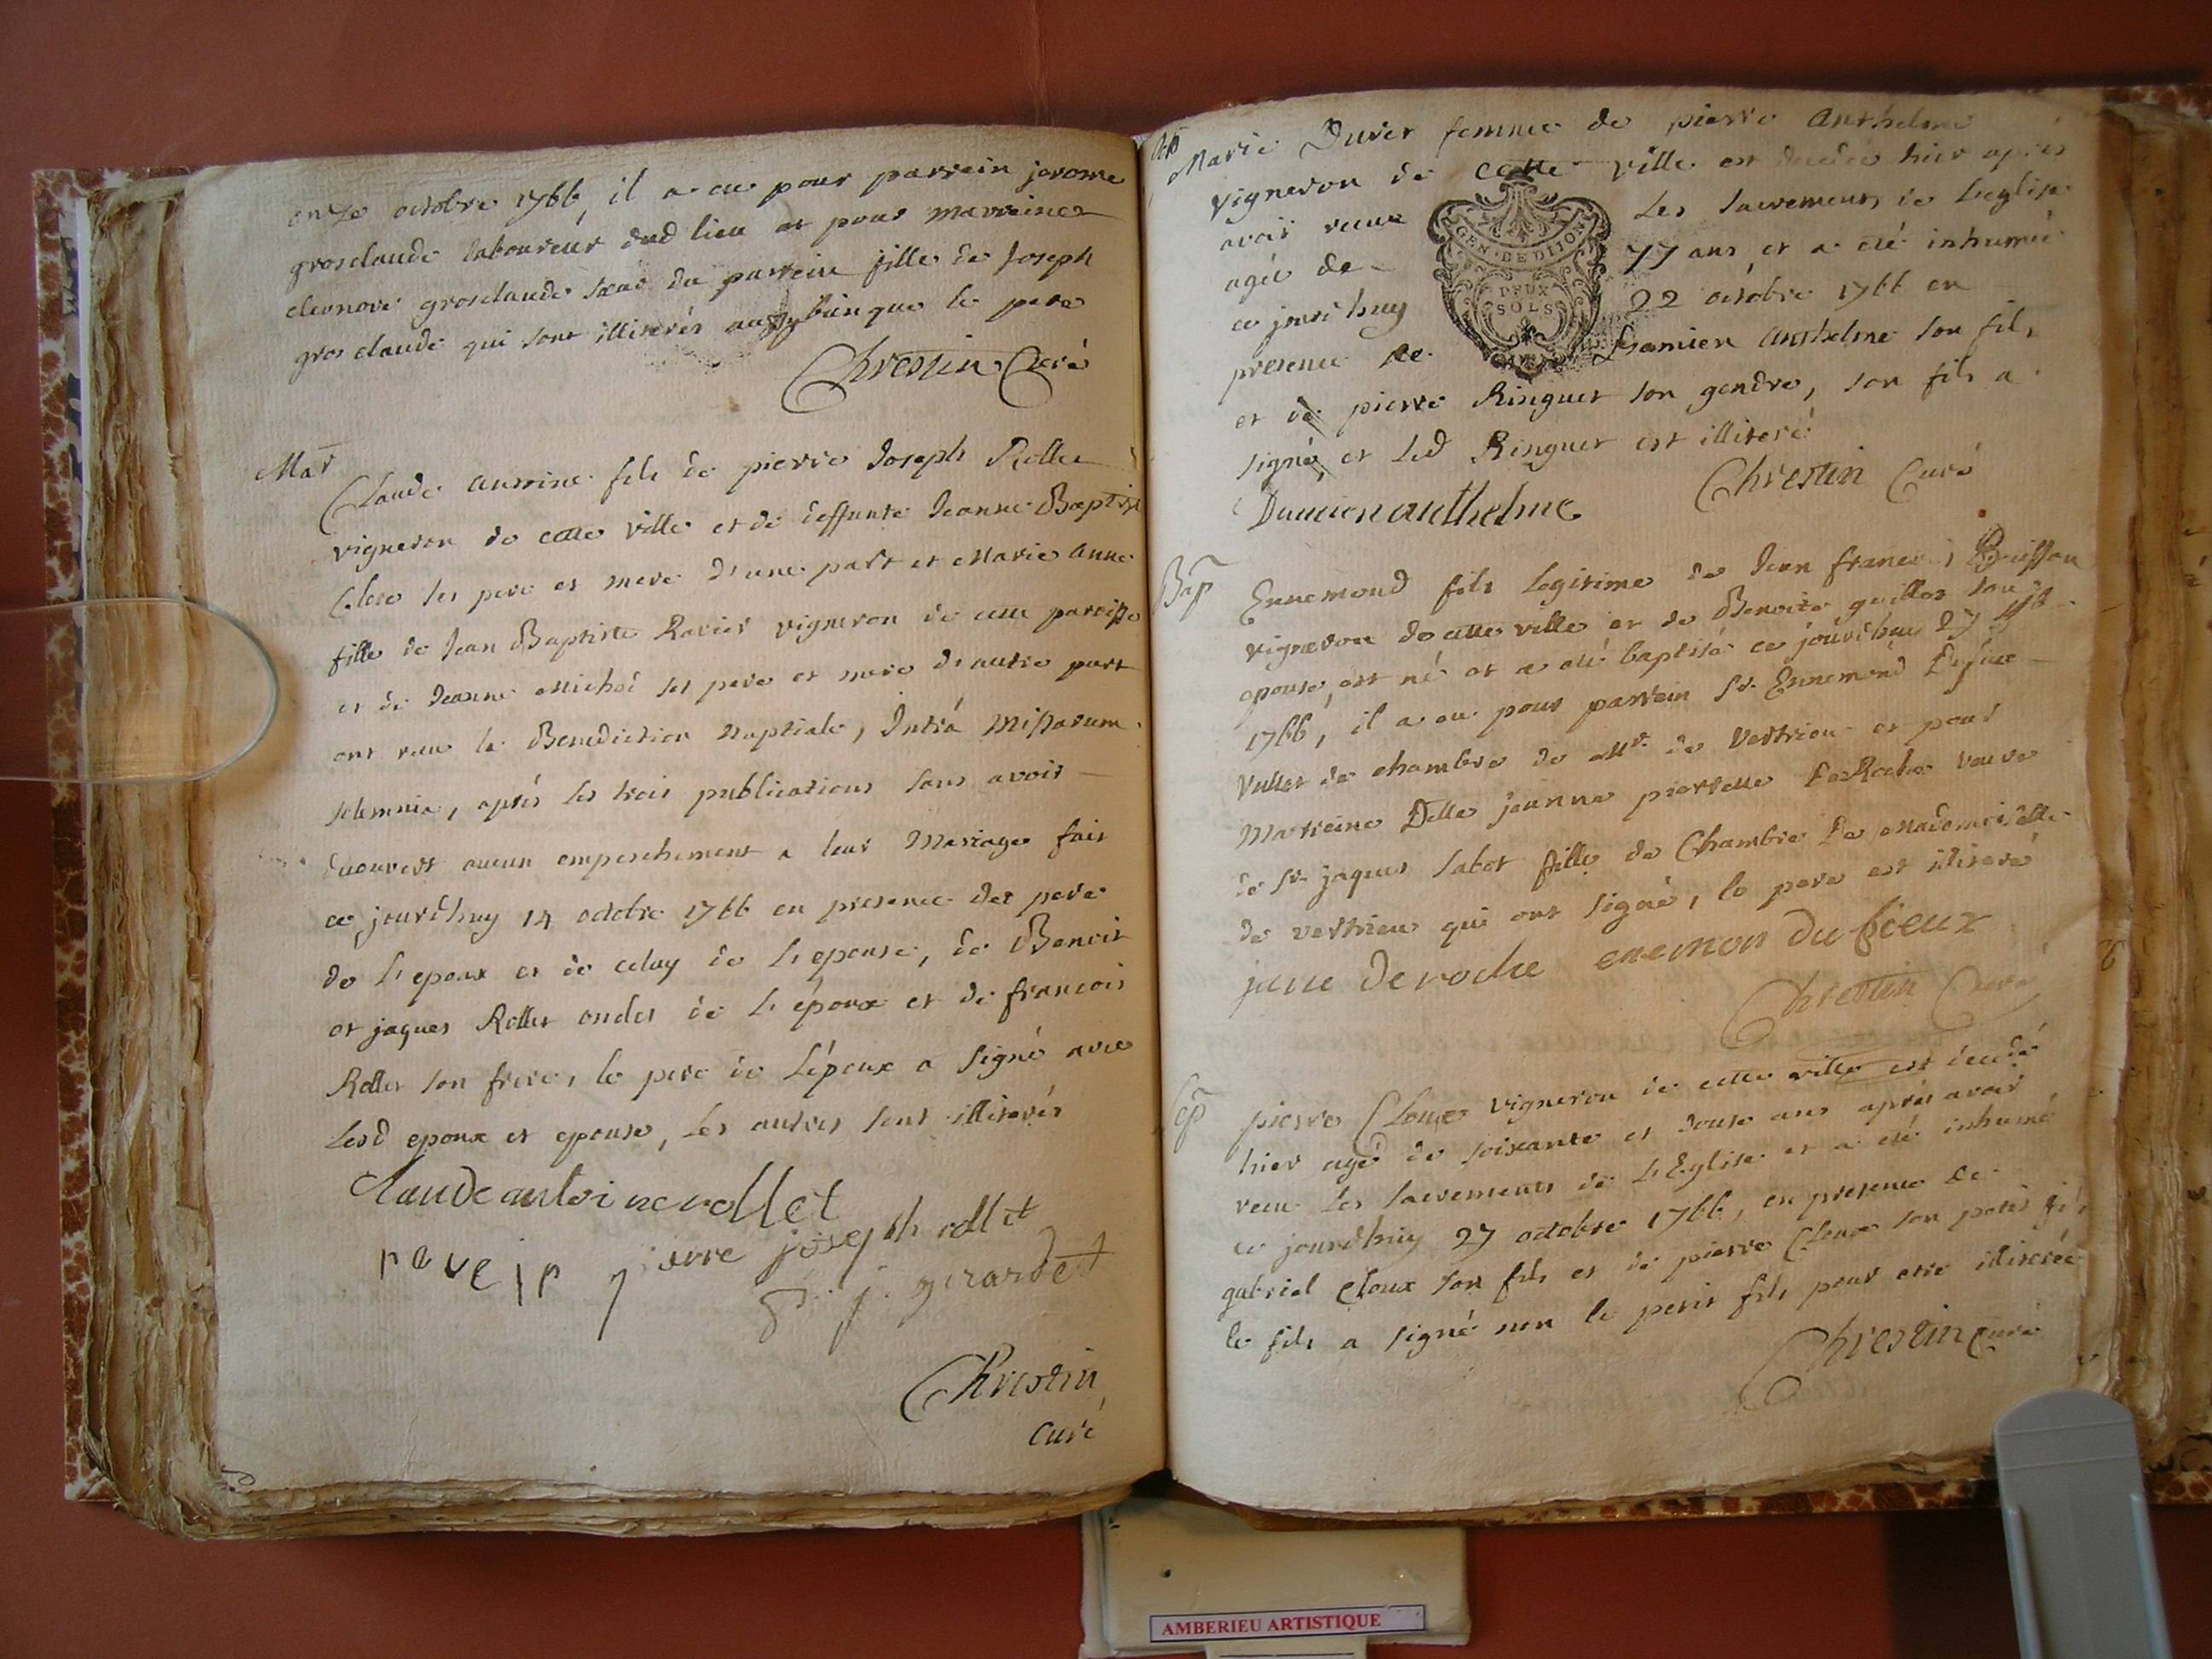 onze octobre 1766, il a eu pour parrein jerome
grosclaude laboureur dud lieu et pour marreine
eleonore grosclaude sœur du parrein fille de Joseph
gros claude qui sont illiterés aussy bien que le pere
Chrestin Curé
Mar
Claude antoine fils de pierre Joseph Rollet
vigneron de cette ville et de deffunte Jeanne Baptiste
Clerc ses pere et mere d'une part et Marie anne
fille de Jean Baptiste Ravier vigneron de cette paroisse
et de Jeanne ses pere et mere d'autre part
ont recu la Benediction nuptiale, Intrà Missarum
solemnia, après les trois publications sans avoir
decouvert aucun empeschement a leur Mariage fait
ce jourdhuy 14 octobre 1766 en presence des pere
de l'epoux et de celuy de l'epouse, de Benoit
et jaques Rollet oncles de l'époux et de francois
Rollet son frere, le pere de l'époux a signé avec
lesd epoux et epouse, les autres sont illiterés
Claude antoine rollet
pierre joseph rollet
j. girardet
Chrestin
curé
Marie Duret femme de pierre anthelme
vigneron de cette ville est decedée hier après
avoir receu les sacrements de l'eglise
agée de 77 ans et a été inhumée
ce jourdhuy 22 octobre 1766 en
presence de Damien anthelme son fils
et de pierre Ringuet son gendre, son fils a
signé, et led Ringuet est illiteré
Chrestin Curé
Damien anthelme
GEN. DE DIJON
DEUX
SOLS
Bap
Ennemond fils legitime de Jean francois Buisson
vigneron de cette ville et de Benoite guillot son
epouse, est né et a été baptisé ce jourdhuy 27 8b
1766, il a eu pour parrein Sr. Ennemond
Vallet de chambre de Mr. de Vertrieu et pour
Marreine Delle jeanne pierrette DeRoche veuve
de Sr. jaques Sabot fille de Chambre De Mademoiselle
de vertrieu qui ont signé, le pere est illiteré
jane De roche enemon du fieux
Chrestin Curé
Sep
pierre Cloux vigneron de cette ville est decedé
hier agé de soixante et douse ans après avoir
receu les sacrements de l'Eglise et a été inhumé
ce jourdhuy 27 octobre 1766, en presence de
gabriel Cloux son fils et de pierre Cloux son petit fils
le fils a signé non le petit fils pour etre illiteré
Chrestin curé
AMBERIEU ARTISTIQUE